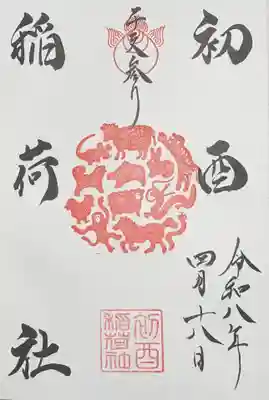 初酉
令和八年
四月十八日
干支参り
稲荷社
初酉
稲荷社